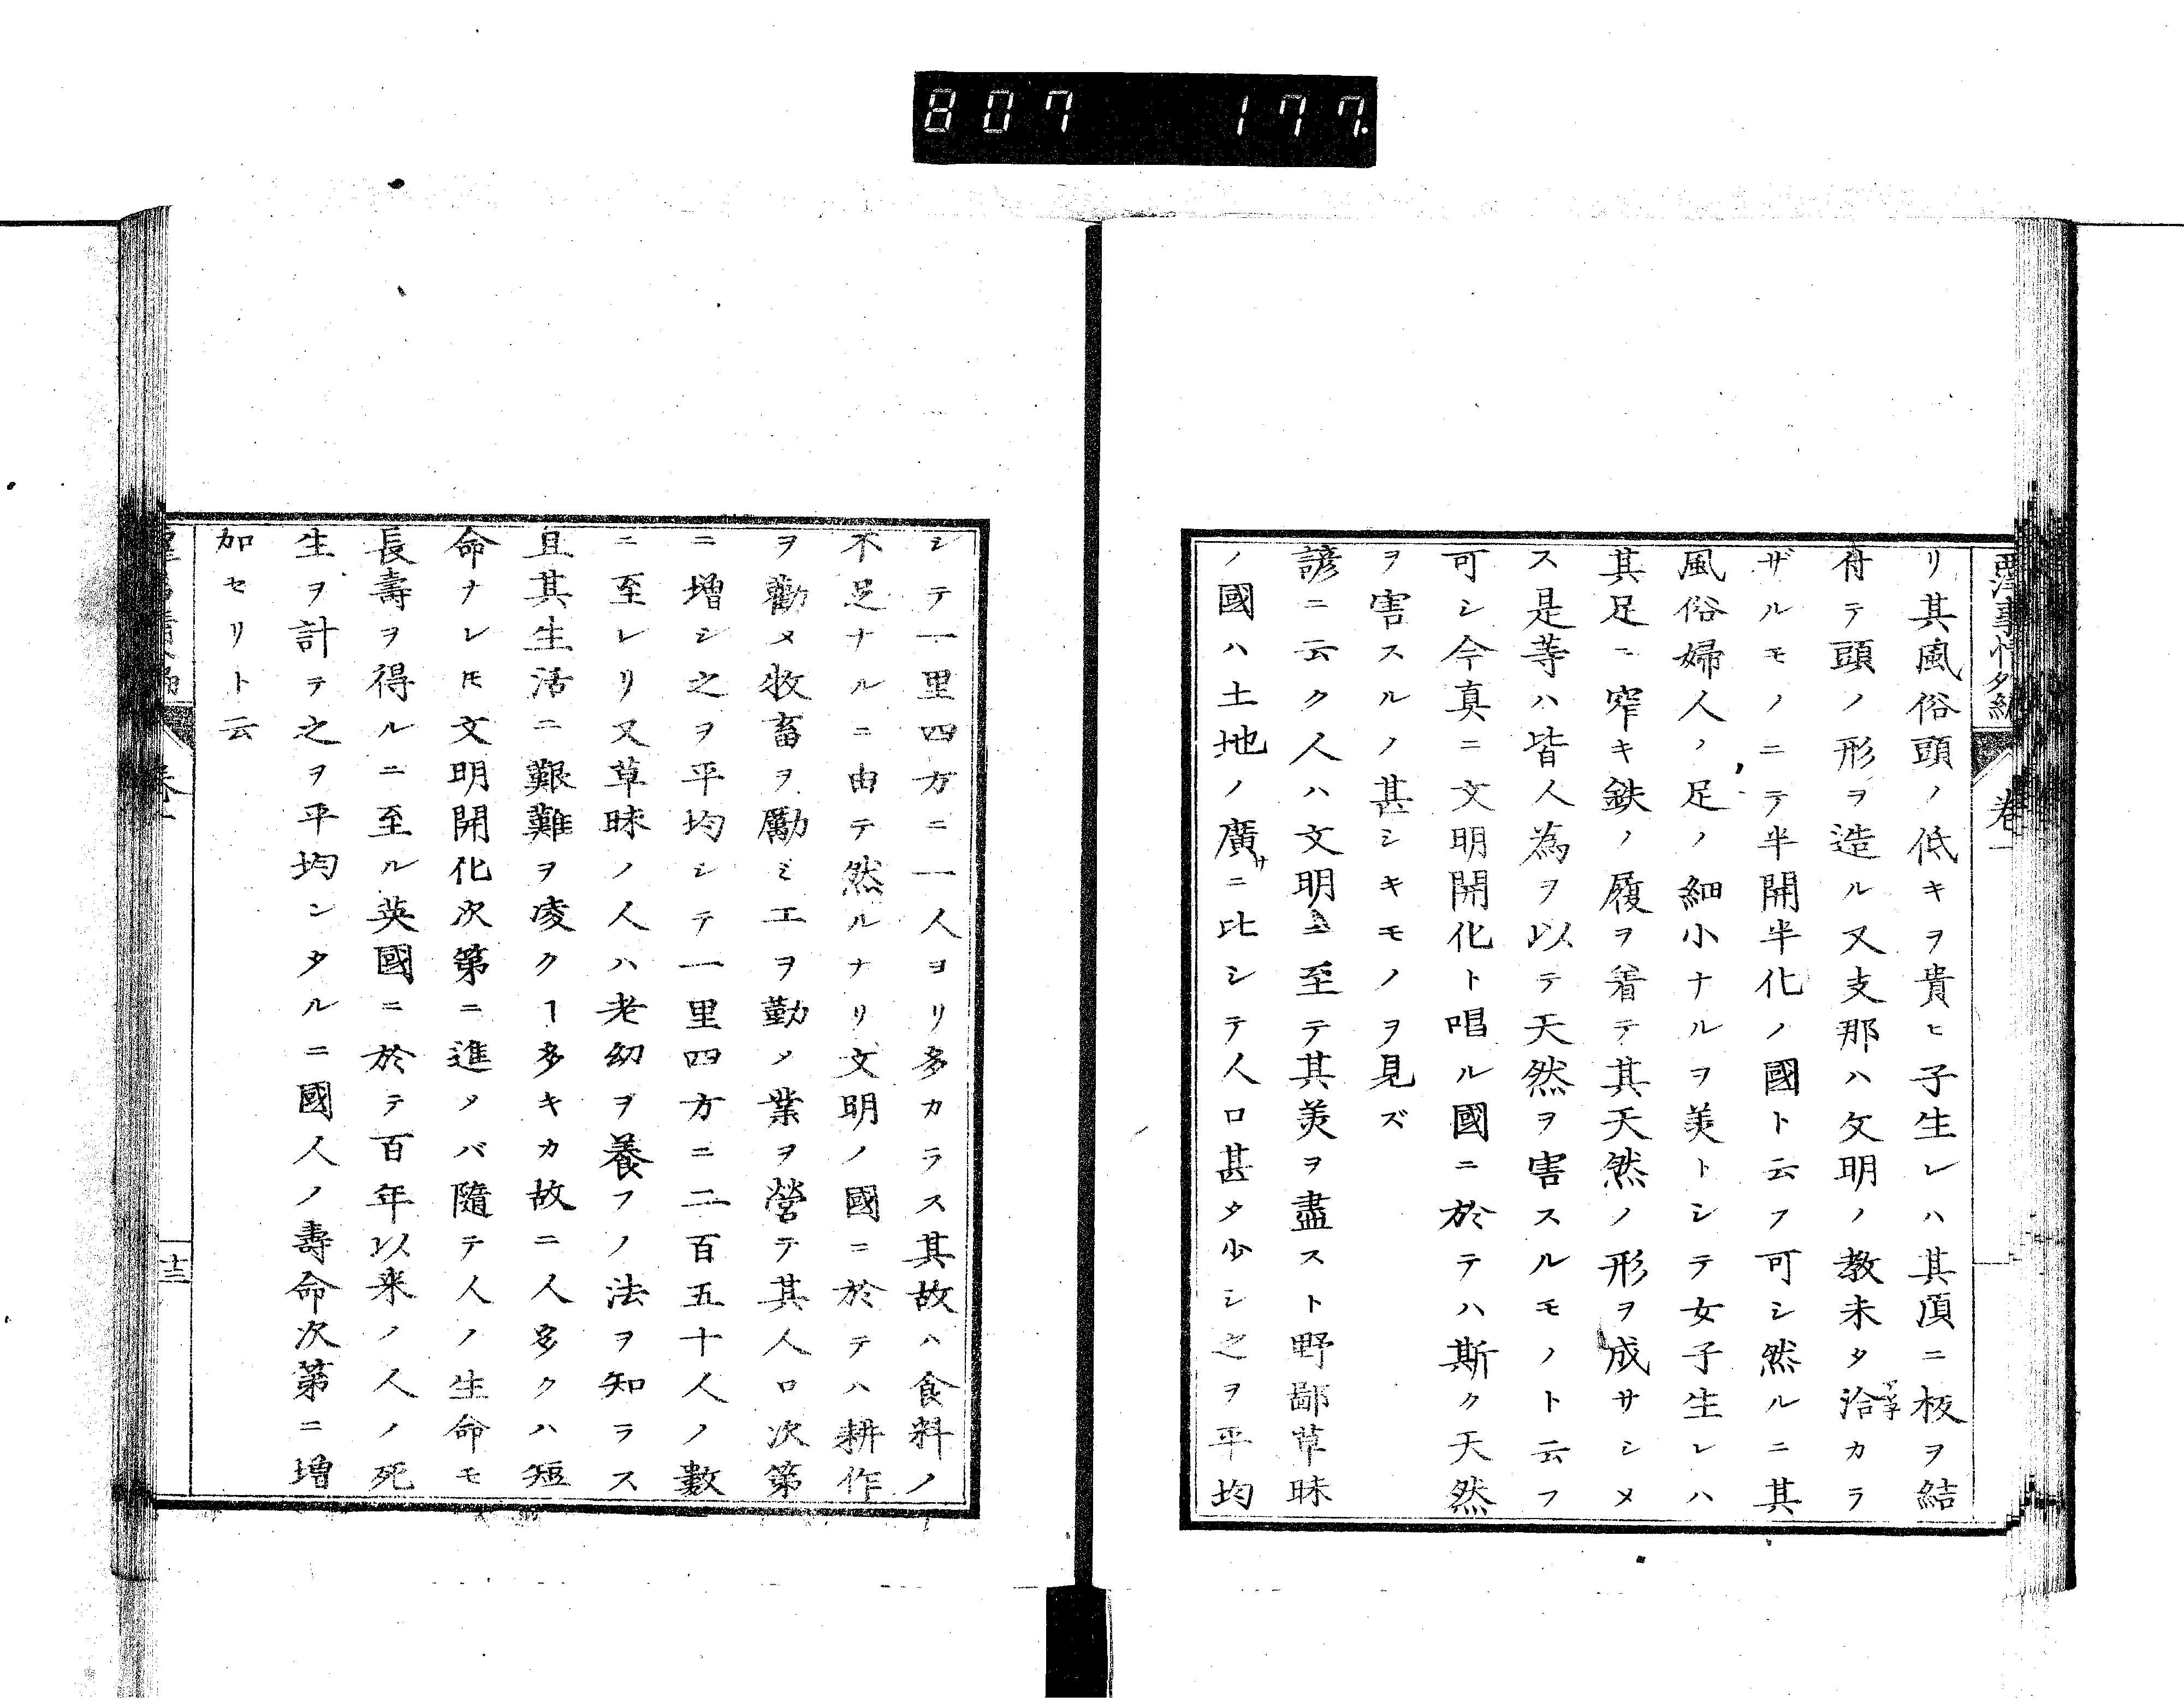 807 177.
西洋事情外編 卷一
リ其風俗頭ノ低キヲ貴ヒ子生レハ其頂ニ板ヲ結
付テ頭ノ形ヲ造ル又支那ハ文明ノ教未タ洽カラ
ザルモノニテ半開半化ノ國ト云フ可シ然ルニ其
風俗婦人ノ足ノ細小ナルヲ美トシテ女子生レハ
其足ニ窄キ鉄ノ履ヲ着テ其天然ノ形ヲ成サシメ
ス是等ハ皆人為ヲ以テ天然ヲ害スルモノト云フ
可シ今真ニ文明開化ト唱ル國ニ於テハ斯ク天然
ヲ害スルノ甚シキモノヲ見ズ
諺ニ云ク人ハ文明ニ至テ其美ヲ盡スト野鄙草昧
ノ國ハ土地ノ廣サニ比シテ人口甚タ少シ之ヲ平均
シテ一里四方ニ一人ヨリ多カラス其故ハ食料ノ
不足ナルニ由テ然ルナリ文明ノ國ニ於テハ耕作
ヲ勸メ牧畜ヲ勵ミ工ヲ勤ノ業ヲ營テ其人口次第
ニ増シ之ヲ平均シテ一里四方ニ二百五十人ノ數
ニ至レリ又草昧ノ人ハ老幼ヲ養フノ法ヲ知ラス
且其生活ニ艱難ヲ凌クヿ多キカ故ニ人多クハ短
命ナレ𪜈文明開化次第ニ進メバ隨テ人ノ生命モ
長壽ヲ得ルニ至ル英國ニ於テ百年以来ノ人ノ死
生ヲ計テ之ヲ平均シタルニ國人ノ壽命次第ニ増
加セリト云
十三